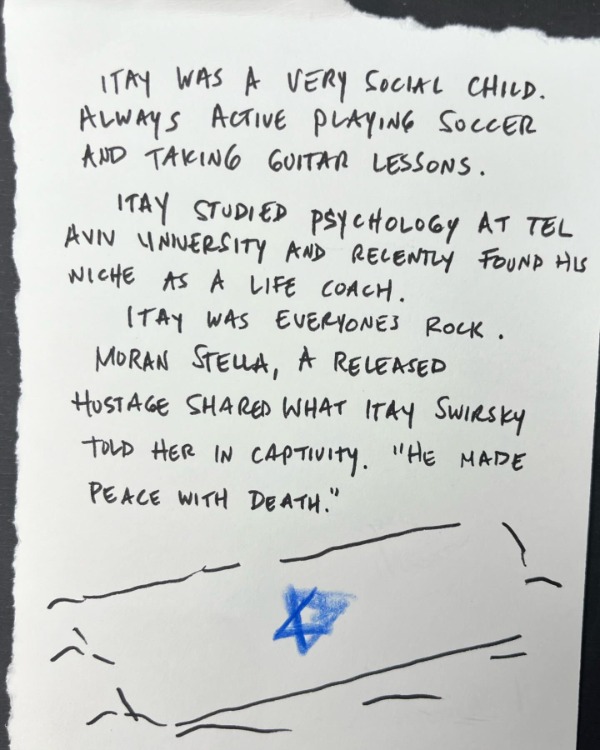 ITAY WAS A VERY SOCIAL CHILD.
ALWAYS ACTIVE PLAYING SOCCER
AND TAKING GUITAR LESSONS.
ITAY STUDIED PSYCHOLOGY AT TEL
AVIV UNIVERSITY AND RECENTLY FOUND HIS
NICHE AS A LIFE COACH.
ITAY WAS EVERYONES ROCK.
MORAN STELLA, A RELEASED
HOSTAGE SHARED WHAT ITAY SWIRSKY
TOLD HER IN CAPTIVITY. "HE MADE
PEACE WITH DEATH."